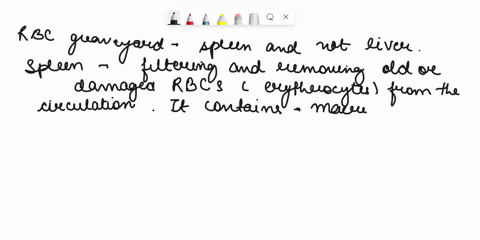 RBC graveyard → spleen and not liver.
Spleen → filtering and removing old or
damaged RBCs (erytherocytes) from the
circulation. It contains → macro